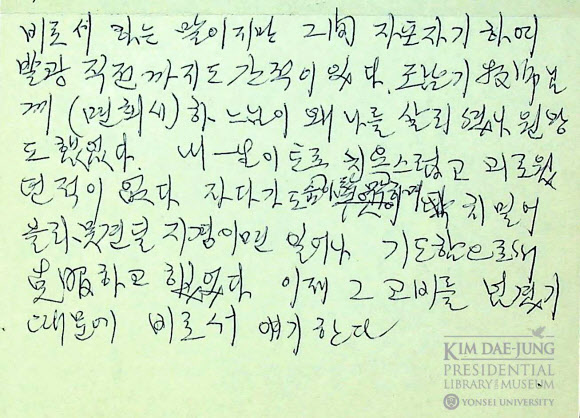 비로서 하는 말이지만 그間 자포자기 하여
발광 직전까지도 간적이 있다.
께 (면회시) 하느님이 왜 나를 살리셨나 원망
도 했었다. 내 一生이 토록 치욕스럽고 괴로웠
던적이 없다 자다가도 치밀어
못견딜 지경이면 일어나 기도함으로써
克服하고 했었다 이제 그 고비를 넘겼기
때문에 비로서 얘기한다
KIM DAE-JUNG
PRESIDENTIAL
LIBRARY & MUSEUM
YONSEI UNIVERSITY